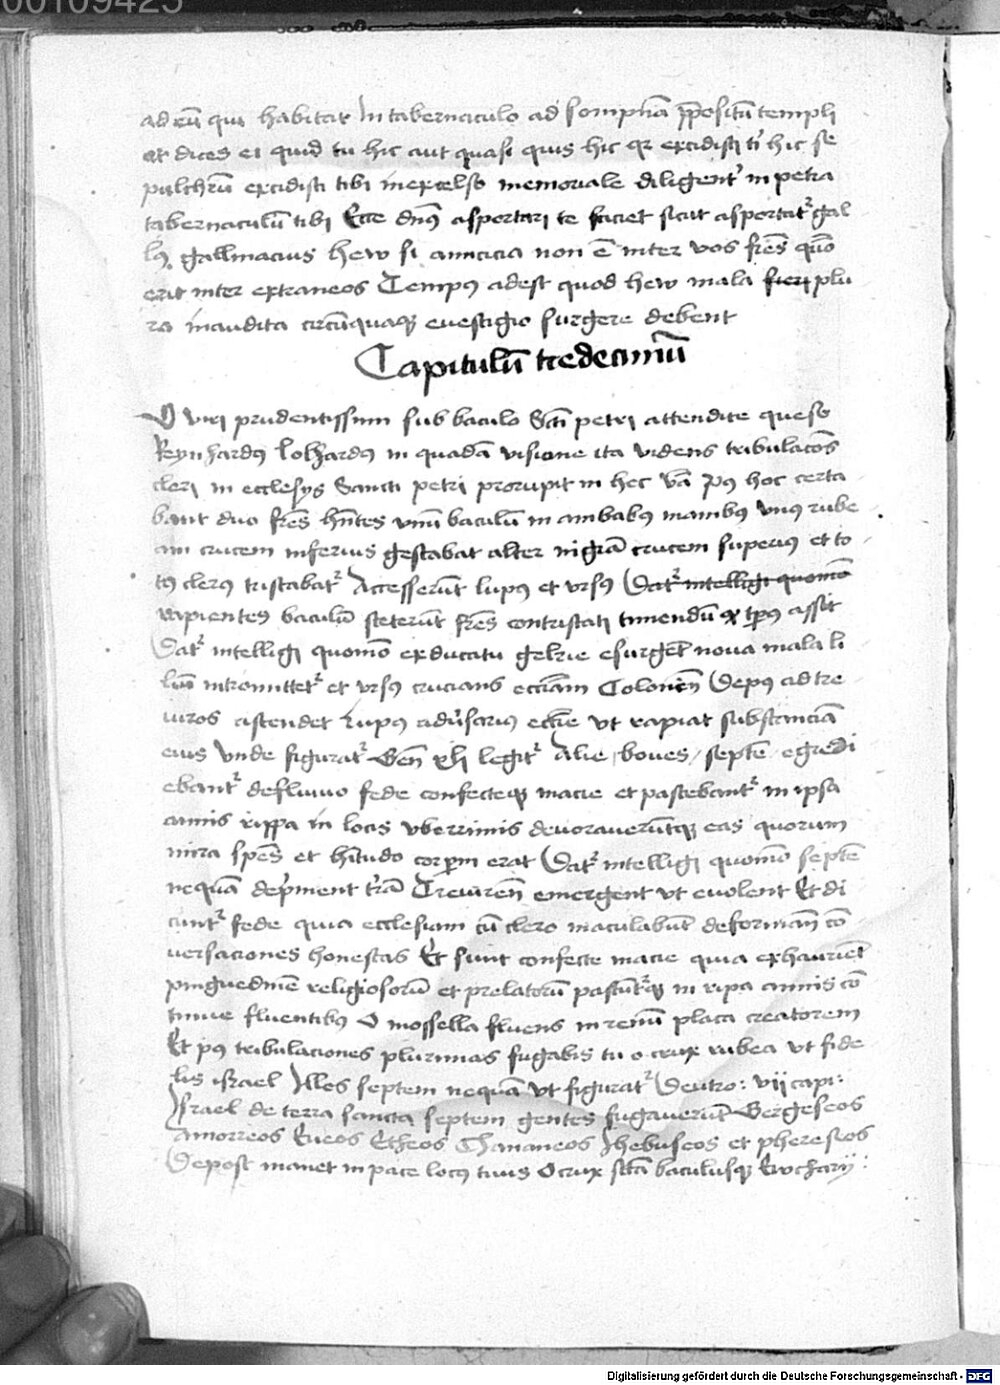 00109425
ad eū qui habitat In tabernaculo ad sompnā ppositū templi
et dices ei quid tu hic aut quasi quis hic qr excidisti tͥ hic se
pulchrū excidisti tibi in excelso memoriale diligentͬ in petra
tabernaculū tibi Ecce dn̄s asportari te faciet sicut asportatͬ gal
lꝰ gallinacius hew si amicicia non ē inter vos frēs quō
erit inter extraneos Tempꝰ adest quod hew mala fieri plu
ra inaudita circūquaqꝫ euestigio surgere debent
Capitulū tredecimū
O viri prudentissimi sub baculo Scti petri attendite queso
Reynhardꝰ lolhardꝰ in quadā visione ita videns tribulacōes
cleri in ecclesys Sancti petri prorupit in hec v̄ba Pꝰ hoc certa
bant duo frēs hn̄tes vnū baculū in ambabꝰ manibꝰ vnꝰ rube
am crucem inferius gestabat alter nigrā crucem superiꝰ et to
tꝰ clerꝰ tristabatͬ Accesserūt lupꝰ et vrsꝰ Datͬ intelligi quomō
rapientes baculū steterūt frēs contristati timendū qꝫ tp̄us assit
Datͬ intelligi quomō ex ducatu gelrie esurgēt noua mala li
liū intromittetͬ et vrsꝰ crucians eccīam Colonien̄ Depꝰ ad tre
uiros astendet Lupꝰ adūsariꝰ eccīe vt rapiat substanciā
eius vnde figuratͬ Gen̄ xli legitͬ Alie boues septē egredi
ebantͬ de fluuio fede confecteqꝫ macie et pascebantͬ in ipsa
amnis rippa in locis vberrimis deuorauerūtqꝫ eas quorum
mira spēs et hītudo corpꝛm erat Datͬ intelligi quomō septē
nequā dep̄ment t̄rā Treuiren̄ emergent vt euolent Et di
cuntͬ fede quia ecclesiam cū clero maculabūt deformān cō
uersaciones honestas Et sunt confecte macie quia exhaurīēt
pinguedinē religiosorū et prelatorū pascūtͬqꝫ in ripa amnis cō
tinue fluentibꝰ O mossella fluens in renū placa creatorem
Et pꝰ tribulaciones plurimas fugabis tu o crux rubea vt fide
lis israel Illes septem nequā vt figuratͬ Deutro: vij capi:
Israel de terra sancta septem gentes fugauerūt Gergeseos
Amorreos Eueos Etheos Chananeos Jhebuseos et phereseos
Depost manet in pace locꝰ tuus O crux sctā baculusqꝫ
Digitalisierung gefördert durch die Deutsche Forschungsgemeinschaft - DFG